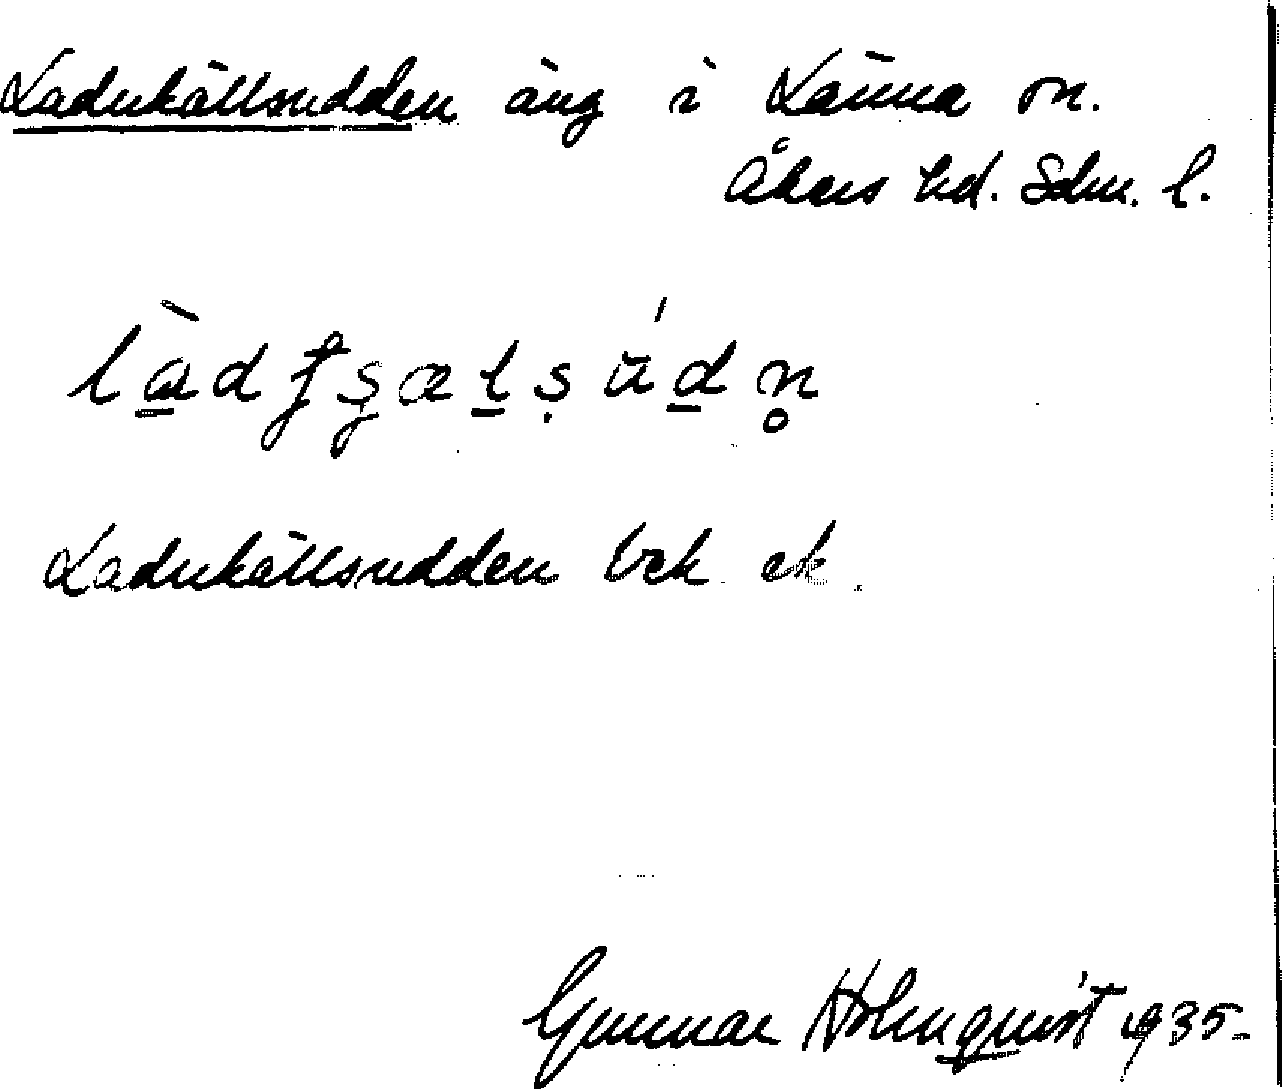 Ladukällsudden äng i Länna sn.
Åkers hd. Sdm. l.
Ladukällsudden bck ek.
Gunnar Holmquist 1935-